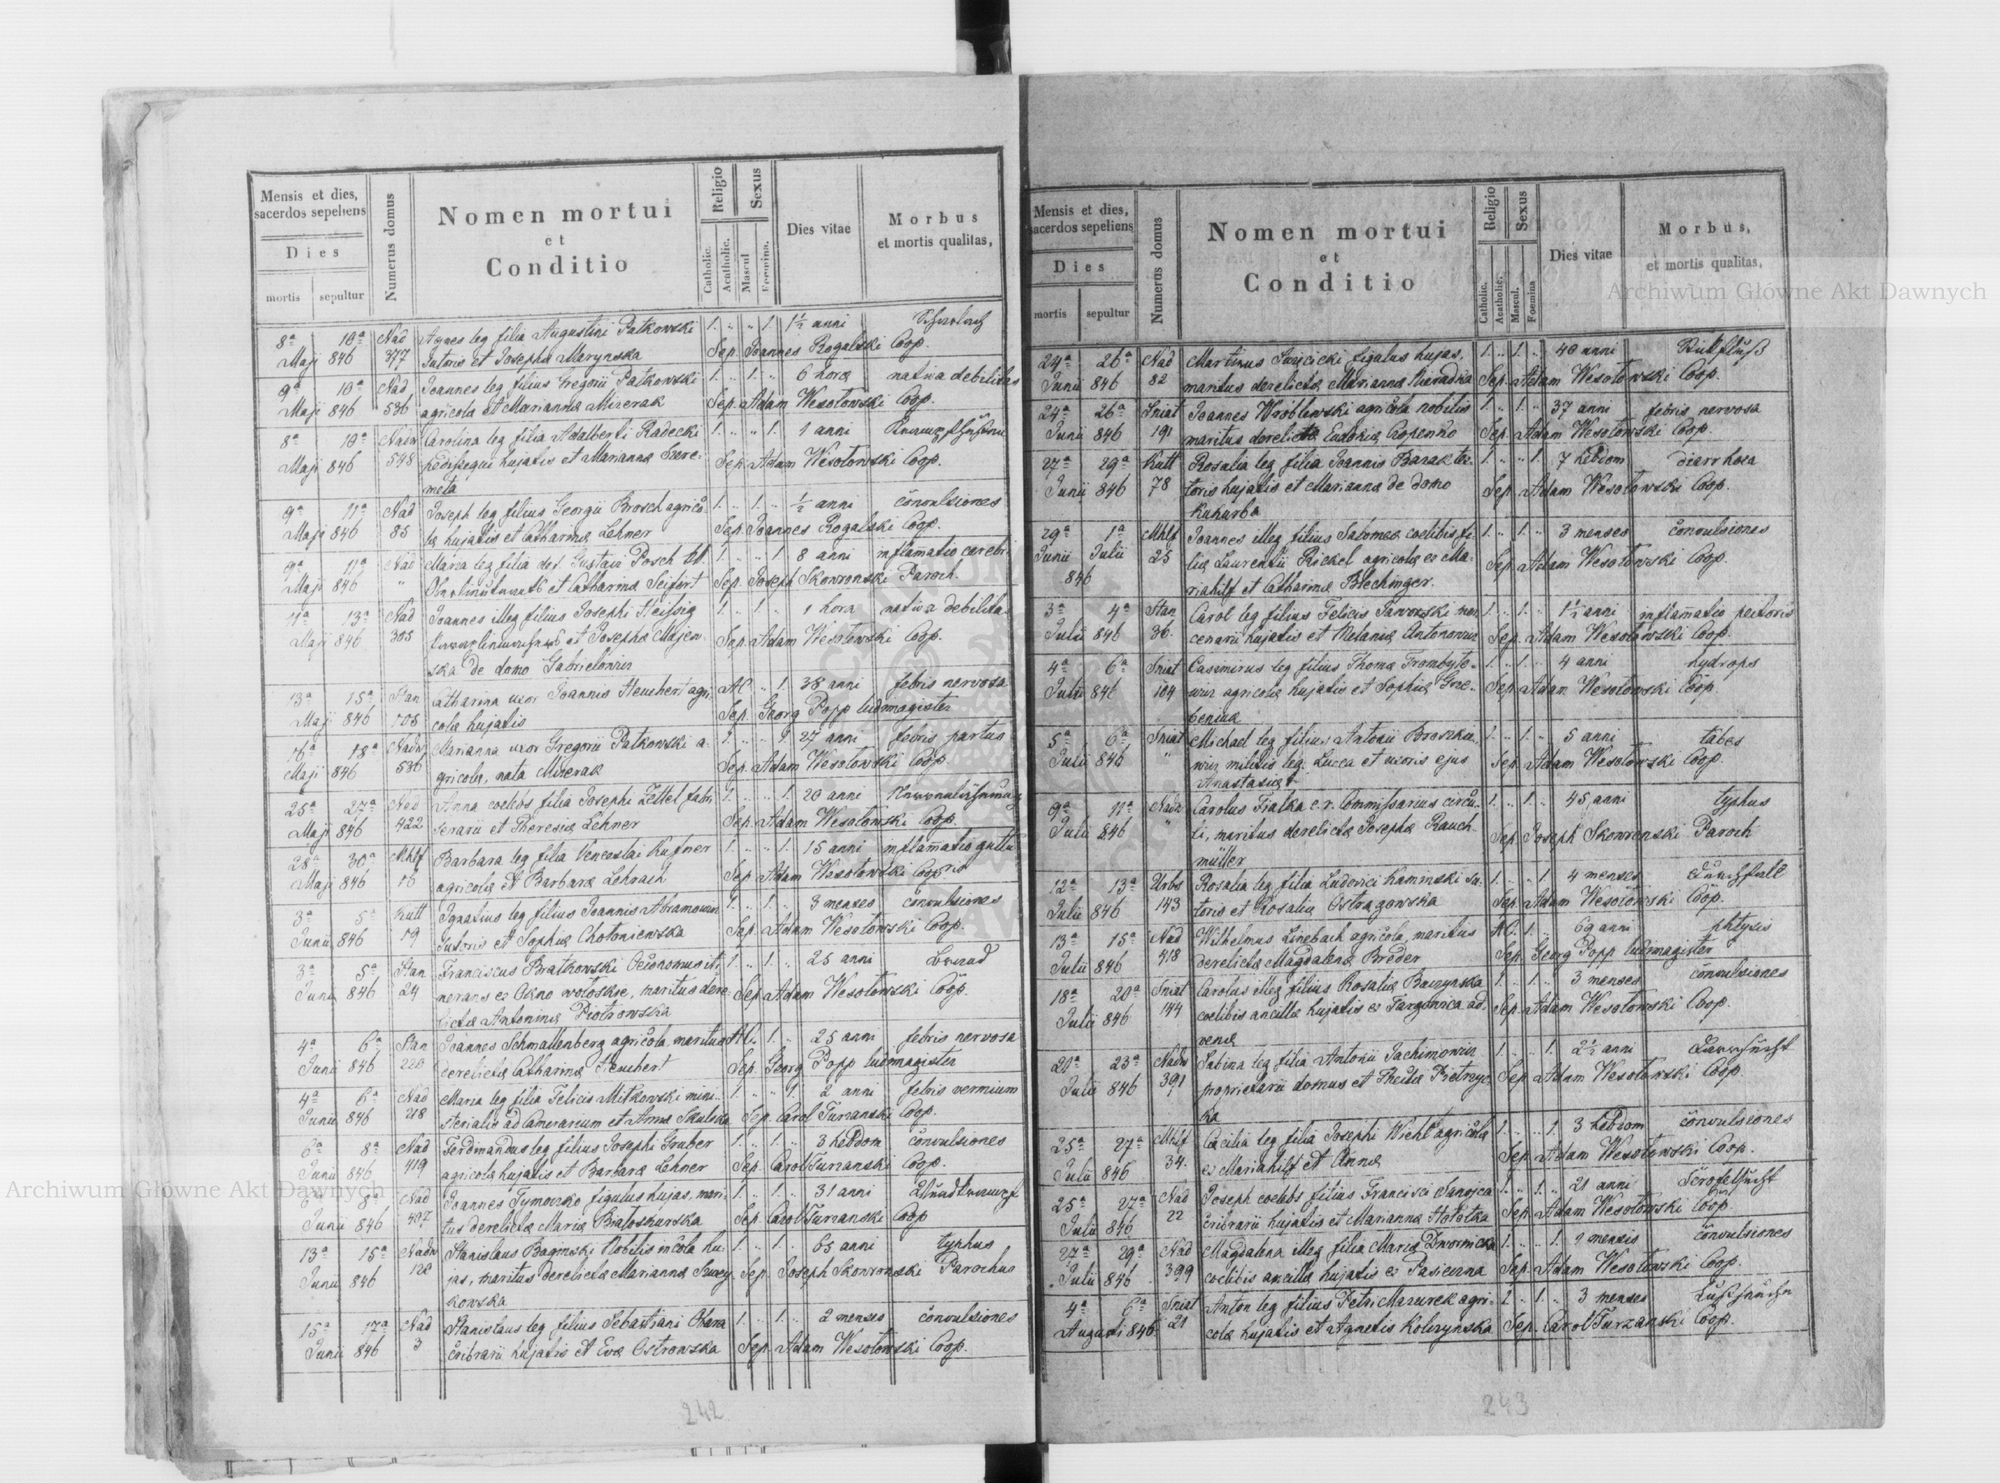 Mensis et dies,
sacerdos sepeliens
Dies
mortis sepultur
Numerus domus
Nomen mortui
et
Conditio
Religio
Catholic.
Acatholic.
Sexus
Mascul
Foemina.
Dies vitae
Morbus
et mortis qualitas,
8ª 10ª Nad Agnes leg filia Augustini Patkowski 1. „ „ 1. 1½ anni
Maji 846 377 Sutoris et Josepha Marynska Sep. Joannes Rogalski Coop.
9ª 10ª Nad Joannes leg filius Gregorii Patkowski 1. „ 1. „ 6 hora nativa debilitas
Maji 846 536 agricola et Marianna Mizerak Sep. Adam Wesołowski Coop.
8ª 10ª Nadw Carolina leg filia Adalberti Radecki 1. „ „ 1. 1 anni
Maji 846 548 pedissequi hujatis et Marianna Szere-
meta Sep. Adam Wesołowski Coop.
9ª 11ª Nad Joseph leg filius Georgii Brosch agrico- 1. „ 1. „ ½ anni convulsiones
Maji 846 85 la hujatis et Catharina Lehner Sep. Joannes Rogalski Coop.
9ª 11ª Nad Maria leg filia def. Gustavi Posch 1. „ „ 1 8 anni inflamatio cerebri
Maji 846 „ et Catharina Seifert Sep. Joseph Skowronski Paroch.
11ª 13ª Nad Joannes illeg filius Josephi Heissig 1. „ 1. „ 1 hora nativa debilitas
Maji 846 305 et Josepha Majew-
ska de domo Gabrielowicz Sep. Adam Wesołowski Coop.
13ª 15ª Stan Catharina uxor Joannis Heuchert agri- AC. „ 1. 38 anni febris nervosa
Maji 846 108 cola hujatis Sep. Georg Popp ludimagister
16ª 18ª Nadw Marianna uxor Gregorii Patkowski a- 1. „ „ 1 27 anni febris partus
Maji 846 536 gricola, nata Mizerak Sep. Adam Wesołowski Coop
25ª 27ª Nad Anna coelebs filia Josephi Zettel fabri 1. „ „ 1. 20 anni
Maji 846 422 ferarii et Theresia Lehner Sep. Adam Wesołowski Coop.
28ª 30ª Mhlf Barbara leg filia Venceslai Kufner 1. „ „ 1. 15 anni inflamatio guttu
Maji 846 16 agricola et Barbara Lehrach Sep. Adam Wesołowski Coop ris
3ª 5ª Kutt Ignatius leg filius Joannis Abramowicz 1. „ 1. „ 3 menses convulsiones
Junii 846 19 Sutoris et Sophia Chotoniewska Sep. Adam Wesołowski Coop.
3ª 5ª Stan Franciscus Bratkowski Oeconomus iti- 1. „ 1. „ 25 anni Brand
Junii 846 24 nerans ex Okno wołoskie, maritus dere-
licta Antonina Piotrowska Sep. Adam Wesołowski Coop.
4ª 6ª Stan Joannes Schmallenberg agricola, maritus AC. 1. „ 25 anni febris nervosa
Junii 846 220 derelicta Catharina Heuchert Sep. Georg Popp ludimagister
4ª 6ª Nad Maria leg filia Felicis Mitkowski mini- 1. „ „ 1. 2 anni febris vermium
Junii 846 218 sterialis ad Camerarum et Anna Skulska Sep. Carol Turzanski Coop.
6ª 8ª Nad Ferdinandus leg filius Josephi Gruber 1. „ 1. „ 3 hebdom convulsiones
Junii 846 419 agricola hujatis et Barbara Lehner Sep. Carol Turzanski Coop.
6ª 8ª Nad Joannes Tymoczko figulus hujas, mari- 1. „ 1. „ 31 anni
Junii 846 407 tus derelicta Maria Białoskurska Sep Carol Turzanski Coop
13ª 15ª Nadw Stanislaus Baginski Nobilis incola hu- 1. „ 1. „ 65 anni typhus
Junii 846 128 jas, maritus derelicta Marianna Szwey-
kowska Sep. Joseph Skowronski Parochus
15ª 17ª Nad Stanislaus leg filius Sebastiani Obara 1. „ 1. „ 2 menses convulsiones
Junii 846 3 cribrarii hujatis et Eva Ostrowska Sep. Adam Wesołowski Coop.
242
Mensis et dies,
sacerdos sepeliens
Dies
mortis sepultur
Numerus domus
Nomen mortui
et
Conditio
Religio
Catholic.
Acatholic.
Sexus
Mascul.
Foemina
Dies vitae
Morbus,
et mortis qualitas,
24ª 26ª Nad Martinus Swięcicki figulus hujas, 1. „ 1. „ 40 anni
Junii 846 82 maritus derelicta Marianna Sep. Adam Wesołowski Coop.
24ª 26ª Sniat Joannes Wróblewski agricola nobilis 1. „ 1. „ 37 anni febris nervosa
Junii 846 191 maritus derelicta Eudokia Sep. Adam Wesołowski Coop.
27ª 29ª Kutt Rosalia leg filia Joannis Barak tex- 1. „ „ 1. 7 hebdom diarrhoea
Junii 846 78 toris hujatis et Marianna de domo
Kukurba Sep. Adam Wesołowski Coop.
29ª 1ª Mhlf Joannes illeg filius Salomea coelibis, fi- 1. „ 1. „ 3 menses convulsiones
Junii Julii 25 lia Laurentii Rickel agricola ex Ma-
846 riahilf et Catharina Blechinger. Sep. Adam Wesołowski Coop.
3ª 4ª Stan Carol leg filius Felicis Jaworski mer- 1. „ 1. „ 1½ anni inflamatio pectoris
Julii 846 36. cenarii hujatis et Melania Antonowicz Sep. Adam Wesołowski Coop.
4ª 6ª Sniat Casimirus leg filius Thoma Trembyto- 1. „ 1. „ 4 anni hydrops
Julii 846 104 wicz agricola hujatis et Sophia Grze-
beniuk Sep. Adam Wesołowski Coop.
5ª 6ª Sniat Michael leg filius Antonii Broszkie- 1. „ 1. „ 5 anni tabes
Julii 846 „ wicz militis leg. Lucca et uxoris ejus
Anastasia Sep. Adam Wesołowski Coop.
9ª 11ª Nadw Carolus Fialka c.r. Commissarius circu- 1. „ 1. „ 45 anni typhus
Julii 846 „ li, maritus derelicta Josepha Rauch
müller Sep. Joseph Skowronski Paroch
12ª 13ª Urbs Rosalia leg filia Ludovici Kaminski Su- 1. „ „ 1. 4 menses Durchfall
Julii 846 143 toris et Rosalia Ostrazowska Sep. Adam Wesołowski Coop.
13ª 15ª Nad Wilhelmus Linebach agricola, maritus AC. 1. „ 69 anni phtysis
Julii 846 418 derelicta Magdalena Breder Sep. Georg Popp ludimagister
18ª 20ª Sniat Carolus illeg filius Rosalia Baczynska 1. „ 1. „ 3 menses convulsiones
Julii 846 144 coelibis ancilla hujatis ex Targowica ad-
vena Sep. Adam Wesołowski Coop.
20ª 23ª Nadw Sabina leg filia Antonii Jachimowicz 1. „ „ 1. 2½ anni
Julii 846 391 proprietarii domus et Thecla Pietrzyc-
ka Sep. Adam Wesołowski Coop.
25ª 27ª Mhlf Cacilia leg filia Josephi Wiehl agricola 1. „ „ 1. 3 hebdom convulsiones
Julii 846 34. ex Mariahilf et Anna Sep. Adam Wesołowski Coop.
25ª 27ª Nad Joseph coelebs filius Francisci Sanojca 1. „ 1. „ 21 anni Scrofelsucht
Julii 846 22 cribrarii hujatis et Marianna Hołotka Sep. Adam Wesołowski Coop.
27ª 29ª Nad Magdalena illeg filia Maria Dwornicka 1. „ „ 1. 2 menses convulsiones
Julii 846 399 coelibis ancilla hujatis ex Pasieczna Sep. Adam Wesołowski Coop.
4ª 6ª Sniat Anton leg filius Petri Mazurek agri- 1. „ 1. „ 3 menses
Augusti 846 21 cola hujatis et Agnetis Kolczynska Sep. Carol Turzanski Coop.
243
Archiwum Główne Akt Dawnych
Archiwum Główne Akt Dawnych